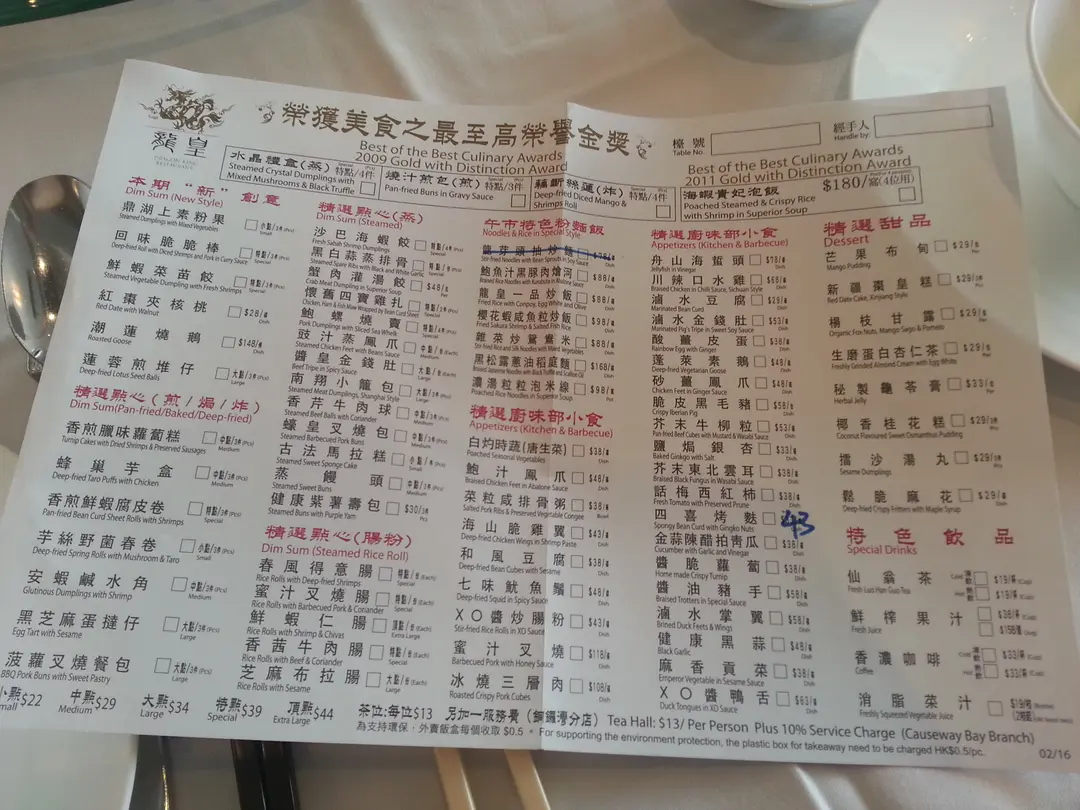 龍皇
DRAGON KING
RESTAURANT
榮獲美食之最至高榮譽金獎
Best of the Best Culinary Awards
2009 Gold with Distinction Award
Best of the Best Culinary Awards
2011 Gold with Distinction Award
檯號
Table No.
經手人
Handle by:
水晶禮盒(蒸) 特點/4件
Steamed Crystal Dumplings with
Mixed Mushrooms & Black Truffle
燒汁煎包(煎) 特點/3件
Pan-fried Buns in Gravy Sauce
Deep-fried Diced Mango &
Shrimps Roll
海蝦貴妃泡飯 $180/窩(4位用)
Poached Steamed & Crispy Rice
with Shrimp in Superior Soup
本期"新"創意
Dim Sum (New Style)
鼎湖上素粉果 小點/3件
Steamed Dumplings with Mixed Vegetables
Small
回味脆脆棒 中點/3件
Deep-fried Roll with Diced Shrimps and Pork in Curry Sauce
鮮蝦菜苗餃 特點/3件
Steamed Vegetable Dumpling with Fresh Shrimps
Special
紅棗夾核桃 $28/
Red Date with Walnut
Dish
潮蓮燒鵝 $148/
Roasted Goose
Dish
蓮蓉煎堆仔 大點/3件
Deep-fried Lotus Seed Balls
Large
精選點心(煎/焗/炸)
Dim Sum(Pan-fried/Baked/Deep-fried)
香煎臘味蘿蔔糕 中點/3件
Turnip Cakes with Dried Shrimps & Preserved Sausages
Medium
蜂巢芋盒 中點/3件
Deep-fried Taro Puffs with Chicken
Medium
香煎鮮蝦腐皮卷 特點/3件
Pan-fried Bean Curd Sheet Rolls with Shrimps
Special
芋絲野菌春卷 小點/3件
Deep-fried Spring Rolls with Mushroom & Taro
Small
安蝦鹹水角 中點/3件
Glutinous Dumplings with Shrimp
Medium
黑芝麻蛋撻仔 大點/3件
Egg Tart with Sesame
Large
菠蘿叉燒餐包 大點/3件
BBQ Pork Buns with Sweet Pastry
Large
精選點心(蒸)
Dim Sum (Steamed)
沙巴海蝦餃 特點/4件
Fresh Sabah Shrimp Dumplings
Special
黑白蒜蒸排骨 特點/
Steamed Spare Ribs with Black and White Garlic
Special
蟹肉灌湯餃 $48/位
Crab Meat Dumpling in Superior Soup
懷舊四寶雞扎 特點/3件
Chicken, Ham & Fish Maw Wrapped by Bean Curd Sheet
鮑螺燒賣 頂點/
Pork Dumplings with Sliced Sea Whelk
豉汁蒸鳳爪 中點/
Steamed Chicken Feet with Beans Sauce
Medium
醬皇金錢肚 大點/
Beef Tripe in Spicy Sauce
Large
南翔小籠包 特點/4件
Steamed Meat Dumplings, Shanghai Style
香芹牛肉球 中點/3件
Steamed Beef Balls with Coriander
Medium
蠔皇叉燒包 中點/3件
Steamed Barbecued Pork Buns
Medium
古法馬拉糕 小點/件
Steamed Sweet Sponge Cake
Small
蒸饅頭 中點/3件
Steamed Sweet Buns
Medium
健康紫薯壽包 $30/3件
Steamed Buns with Purple Yam
精選點心(腸粉)
Dim Sum (Steamed Rice Roll)
春風得意腸 特點/份(Each)
Rice Rolls with Deep-fried Shrimps
Special
蜜汁叉燒腸 特點/份(Each)
Rice Rolls with Barbecued Pork & Coriander
Special
鮮蝦仁腸 頂點/份(Each)
Rice Rolls with Shrimp & Chivas
Extra Large
香茜牛肉腸 特點/份(Each)
Rice Rolls with Beef & Coriander
Special
芝麻布拉腸 大點/份(Each)
Rice Rolls with Sesame
Large
午市特色粉麵飯
Noodles & Rice in Special Style
龍芽頭抽炒麵 $78/
Stir-fried Noodles with Bean Sprouts in Soy Sauce
鮑魚汁黑豚肉燴河 $86/
龍皇一品炒飯 $88/
Fried Rice with Conpoy, Egg White and Olive
櫻花蝦咸魚粒炒飯 $98/
Fried Sakura Shrimp & Salted Fish Rice
雜菜炒鴛鴦米 $88/
Stir-fried Rice and Silk Noodles with Mixed Vegetables
黑松露蔥油稻庭麵 $168/
Braised Japanese Noodles with Black Truffle and Scallion Oil
濃湯粒粒泡米線 $98/
Poached Rice Noodles in Superior Soup
精選廚味部小食
Appetizers (Kitchen & Barbecue)
白灼時蔬(唐生菜) $38/
Poached Seasonal Vegetables
鮑汁鳳爪 $48/
Chicken Feet in Abalone Sauce
菜粒咸排骨粥 $38/
Salted Pork Ribs & Preserved Vegetable Congee
Bowl
海山脆雞翼 $43/
Deep-fried Chicken Wings in Shrimp Paste
和風豆腐 $38/
Deep-fried Bean Cubes with Sesame
七味魷魚鬚 $48/
Deep-fried Squid in Spicy Sauce
XO醬炒腸粉 $43/
Stir-fried Rice Rolls in XO Sauce
蜜汁叉燒 $118/
Barbecued Pork with Honey Sauce
冰燒三層肉 $108/
Roasted Crispy Pork Cubes
精選廚味部小食
Appetizers (Kitchen & Barbecue)
舟山海蜇頭 $78/
Jellyfish in Vinegar
川辣口水雞 $68/
Braised Chicken in Chilli Sauce, Sichuan Style
滷水豆腐 $29/
Marinated Bean Curd
滷水金錢肚 $53/
Marinated Pig's Tripe in Sweet Soy Sauce
酸薑皮蛋 $38/
Rainbow Egg with Ginger
蓬萊素鵝 $48/
Deep-fried Vegetarian Goose
砂薑鳳爪 $48/
Chicken Feet in Ginger Sauce
脆皮黑毛豬 $58/
Crispy Iberian Pig
芥末牛柳粒 $53/
Pan-fried Beef Cubes with Mustard & Wasabi Sauce
鹽焗銀杏 $33/
Baked Ginkgo with Salt
芥末東北雲耳 $38/
Braised Black Fungus in Wasabi Sauce
話梅西紅柿 $38/
Fresh Tomato with Preserved Prune
四喜烤麩 43
Spongy Bean Curd with Gingko Nuts
金蒜陳醋拍青瓜 $38/
Cucumber with Garlic and Vinegar
醬脆蘿蔔 $38/
Home made Crispy Turnip
醬油豬手 $58/
Braised Trotters in Special Sauce
滷水掌翼 $58/
Brined Duck Feets & Wings
健康黑蒜 $48/
Black Garlic
麻香貢菜 $38/
Emperor Vegetable in Sesame Sauce
XO醬鴨舌 $63/
Duck Tongues in XO Sauce
精選甜品
Dessert
芒果布甸 $29/件
Mango Pudding
新疆棗皇糕 $29/3件
Red Date Cake, Xinjiang Style
楊枝甘露 $29/位
Organic Fox Nuts, Mango Sago & Pomelo
生磨蛋白杏仁茶 $29/位
Freshly Grinded Almond Cream with Egg White
秘製龜苓膏 $33/位
Herbal Jelly
椰香桂花糕 $29/3件
Coconut Flavoured Sweet Osmanthus Pudding
擂沙湯丸 $29/3件
Sesame Dumplings
鬆脆麻花 $29/
Deep-fried Crispy Fritters with Maple Syrup
特色飲品
Special Drinks
仙翁茶 Cold $19/杯 (Cup)
Hot $19/杯 (Cup)
Fresh Luo Han Guo Tea
鮮榨果汁 $38/杯 (Cup)
Fresh Juice
香濃咖啡 Cold $33/杯 (Cup)
Coffee Hot $33/杯 (Cup)
消脂菜汁 $19/
Freshly Squeezed Vegetable Juice
小點$22 中點$29 大點$34 特點$39 頂點$44
Small Medium Large Special Extra Large
茶位:每位$13 另加一服務費(銅鑼灣分店) Tea Hall: $13/ Per Person Plus 10% Service Charge (Causeway Bay Branch)
為支持環保,外賣飯盒每個收取 $0.5 • For supporting the environment protection, the plastic box for takeaway need to be charged HK$0.5/pc.
02/16